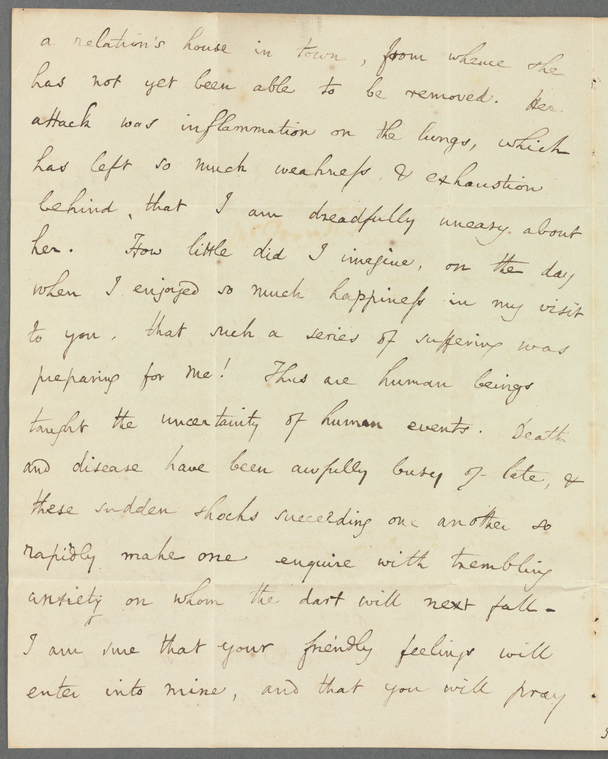 a relation's house in town, from whence she
has not yet been able to be removed. Her
attack was inflammation on the lungs, which
has left so much weakness & exhaustion
behind, that I am dreadfully uneasy about
her. How little did I imagine, on the day
when I enjoyed so much happiness in my visit
to you, that such a series of suffering was
preparing for me! Thus are human beings
taught the uncertainty of human events. Death
and disease have been awfully busy of late, &
these sudden shocks succeeding one another so
rapidly make one enquire with trembling
anxiety on whom the dart will next fall -
I am sure that your friendly feelings will
enter into mine, and that you will pray